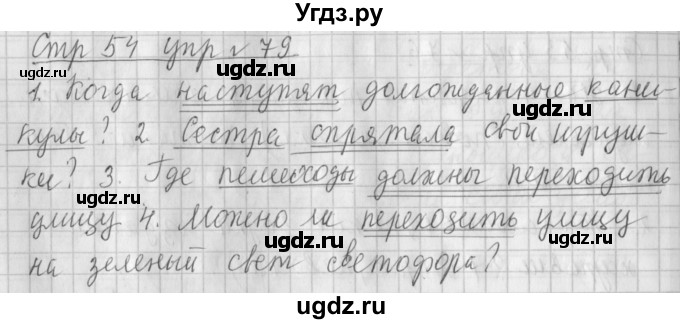 Угдз.ру
Стр 54 упр № 79
ugdz.ru ugdz.ru ugdz.ru
1. Когда наступят долгожданные кани-
ugdz.ru ugdz.ru
кулы? 2. Сестра спрятала свои игруш-
ки? 3. Где пешеходы должны переходить
ugdz.ru ugdz.ru
улицу 4. Можно ли переходить улицу
ugdz.ru ugdz.ru
на зеленый свет светофора?
ugdz.ru